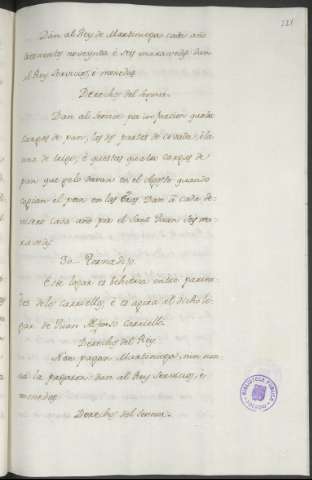 221
Dan al Rey de Martiniega cada año
trecientos noveynta è seys maravedis dan
al Rey Servicios, è monedas
Derechos del Señor.
Dan al Señor por infurcion quatro
cargas de pan, las de partes de cevada, è la
una de trigo, è questas quatro cargas de
pan que pelo levan en el Agosto quando
copian el pan en las Eras. Dan à cada de-
visero cada año por el Sant Juan seys ma-
ravedis.
30 - Tornadijo.
Este logar es behetria entre parien-
tes de los Carriellos, è es agora el dicho lo-
gar de Juan Alfonso Carriello
Derechos del Rey
Non pagan Martiniega, nin nun-
ca la pagaron: dan al Rey Servicios, è
monedas
Derechos del Señor.
BIBLIOTECA PUBLICA
TOLEDO